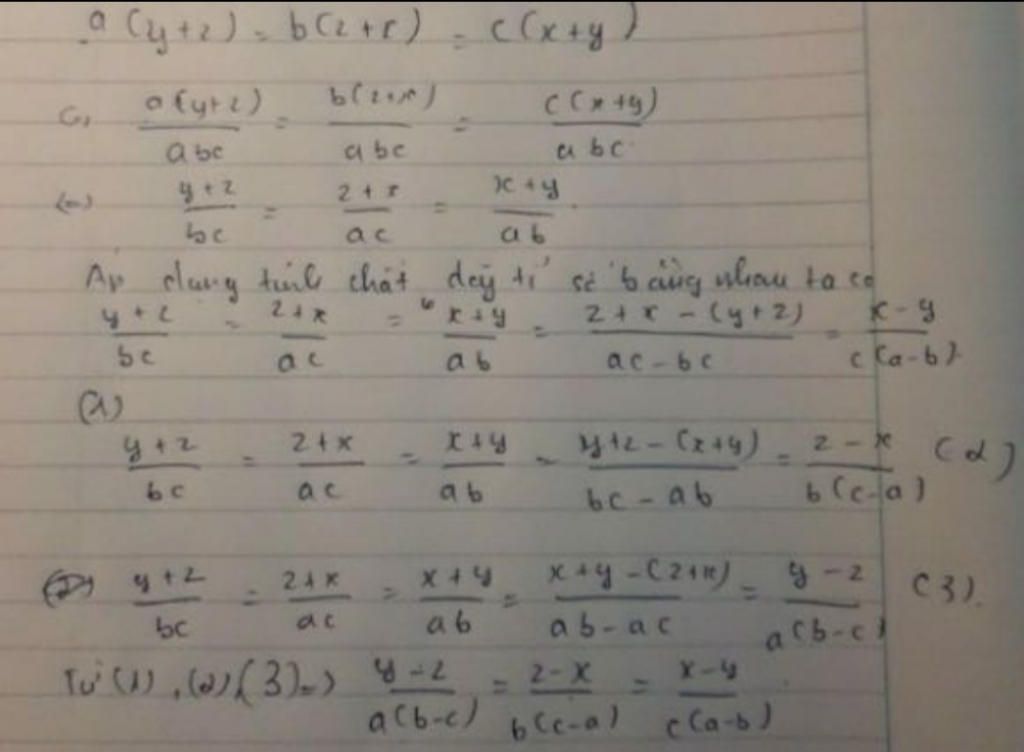 a(y+z) = b(z+x) = c(x+y)
(=) a(y+z)/abc = b(z+x)/abc = c(x+y)/abc
(=) y+z/bc = z+x/ac = x+y/ab
Áp dụng tính chất dãy tỉ số bằng nhau ta có
y+z/bc = z+x/ac = x+y/ab = z+x-(y+z)/ac-bc = x-y/c(a-b)
(1)
y+z/bc = z+x/ac = x+y/ab = y+z-(x+y)/bc-ab = z-x/b(c-a) (2)
y+z/bc = z+x/ac = x+y/ab = x+y-(z+x)/ab-ac = y-z/a(b-c) (3).
Từ (1), (2), (3) => y-z/a(b-c) = z-x/b(c-a) = x-y/c(a-b)